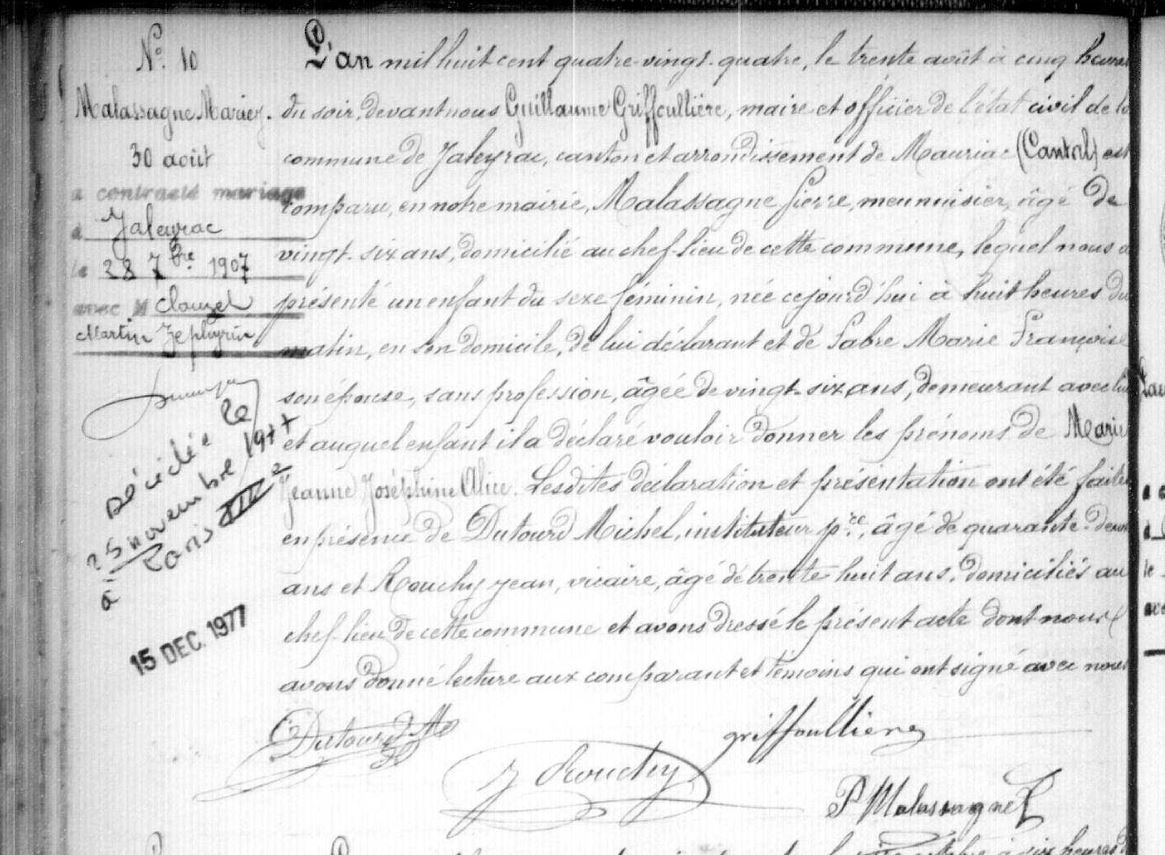 N° 10
Malassagne Marie J.
30 août
a contracté mariage
à Jaleyrac
le 28 7bre 1907
avec M Clauzel
Martin Zéphyrin
Décédée le
25 novembre 1977
à Paris
15 DEC. 1977
L'an mil huit cent quatre-vingt-quatre, le trente août à cinq heures
du soir, devant nous Guillaume Griffoullière, maire et officier de l'état civil de la
commune de Jaleyrac, canton et arrondissement de Mauriac (Cantal) est
comparu, en notre mairie, Malassagne Pierre, meunuisier, âgé de
vingt-six ans, domicilié au chef-lieu de cette commune, lequel nous a
présenté un enfant du sexe féminin, née cejourd'hui à huit heures du
matin, en son domicile, de lui déclarant et de Fabre Marie Françoise
son épouse, sans profession, âgée de vingt-six ans, demeurant avec lui
et auquel enfant il a déclaré vouloir donner les prénoms de Marie
Jeanne Joséphine Alice. Lesdites déclaration et présentation ont été faites
en présence de Dutourd Michel, instituteur p.ce, âgé de quarante-deux
ans et Rouchy Jean, vicaire, âgé de trente huit ans, domiciliés au
chef-lieu de cette commune et avons dressé le présent acte dont nous
avons donné lecture aux comparant et témoins qui ont signé avec nous
Dutourd
griffoullière
J Rouchy
P Malassagne